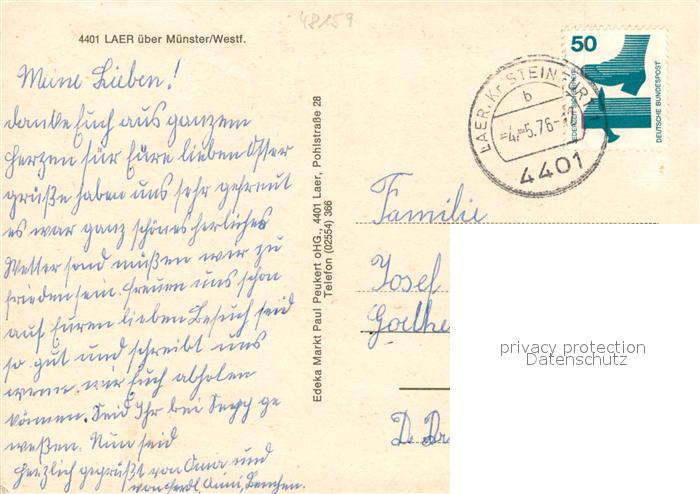 48159
4401 LAER über Münster/Westf.
Meine Lieben!
danke Euch aus ganzem
Herzen für Eure lieben Oster
grüße haben uns sehr gefreut
es war ganz schönes herliches
Wetter sond müßen wir zu
frieden sein. freuen uns schon
auf Euren lieben Besuch seid
so gut und schreibt uns
wenn wir Euch abholen
können. Seid Ihr bei Sepp ge
weßen. Nun seid
herzlich gegrüßt von Oma und
von Ferdl, Anni,
Edeka Markt Paul Peukert oHG., 4401 Laer, Pohlstraße 28
Telefon (02554) 366
50
DEUTSCHE BUNDESPOST
JEDERZEIT SICHERHEIT
LAER, Kr STEINFURT
b
-4.-5.76-
4401
Familie
Josef
Goethe
D
privacy protection
Datenschutz